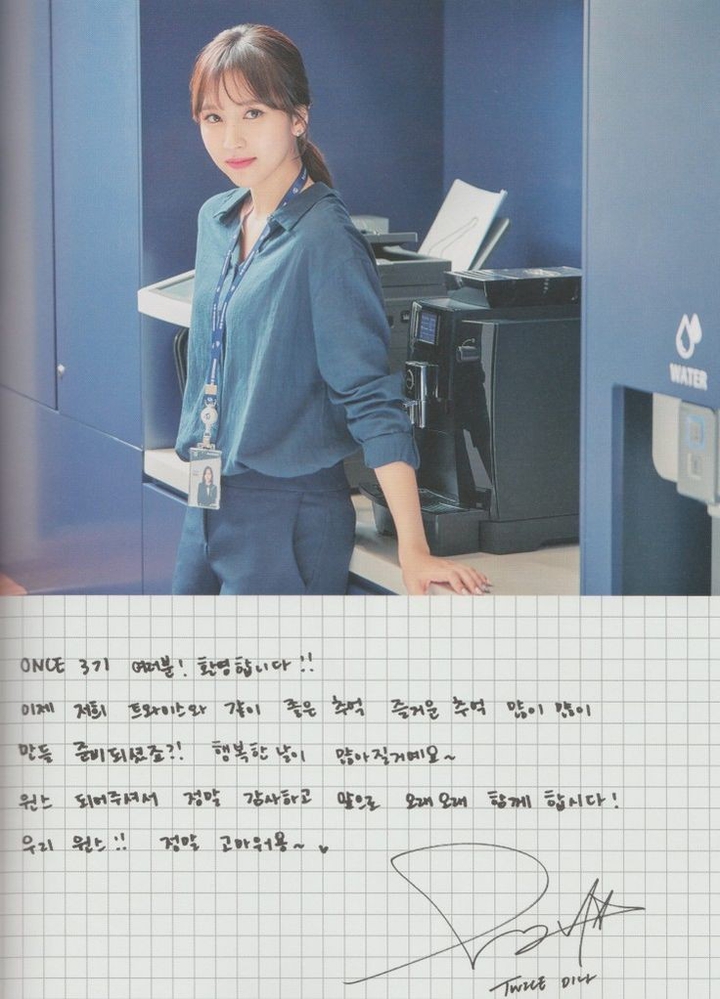 WATER
ONCE 3기 여러분! 환영합니다!!
이제 저희 트와이스와 같이 좋은 추억 즐거운 추억 많이 많이
만들 준비되셨죠?! 행복한 날이 많아질거예요~
원스 되어주셔서 정말 감사하고 앞으로 오래오래 함께 합시다!
우리 원스!! 정말 고마워용~
TWICE 미나